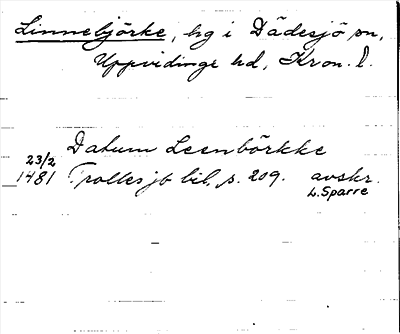 Linnebjörke, hg i Dädesjö sn,
Uppvidinge hd, Kron. l.
Datum Leenbörkke
23/2
1481 Trolles jb bil, s. 209. avskr.
L. Sparre